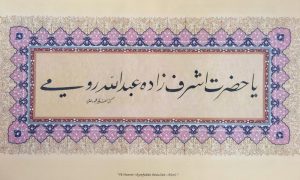 یا حضرت اشرف زاده عبدالله رومی
"Yâ Hazret-i Eşrefzâde Abdullah-ı Rûmî"